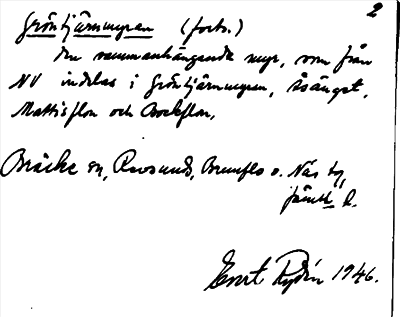 2
Gröntjärnmyren (forts.)
Den sammanhängande myr, som från
NV indelas i Gröntjärnmyren, Åsänget,
Mattisflon och Bockflon,
Bräcke sn, Revsunds, Brunflo o. Näs tg,
Jämtl. l.
Evert Rydén 1946.